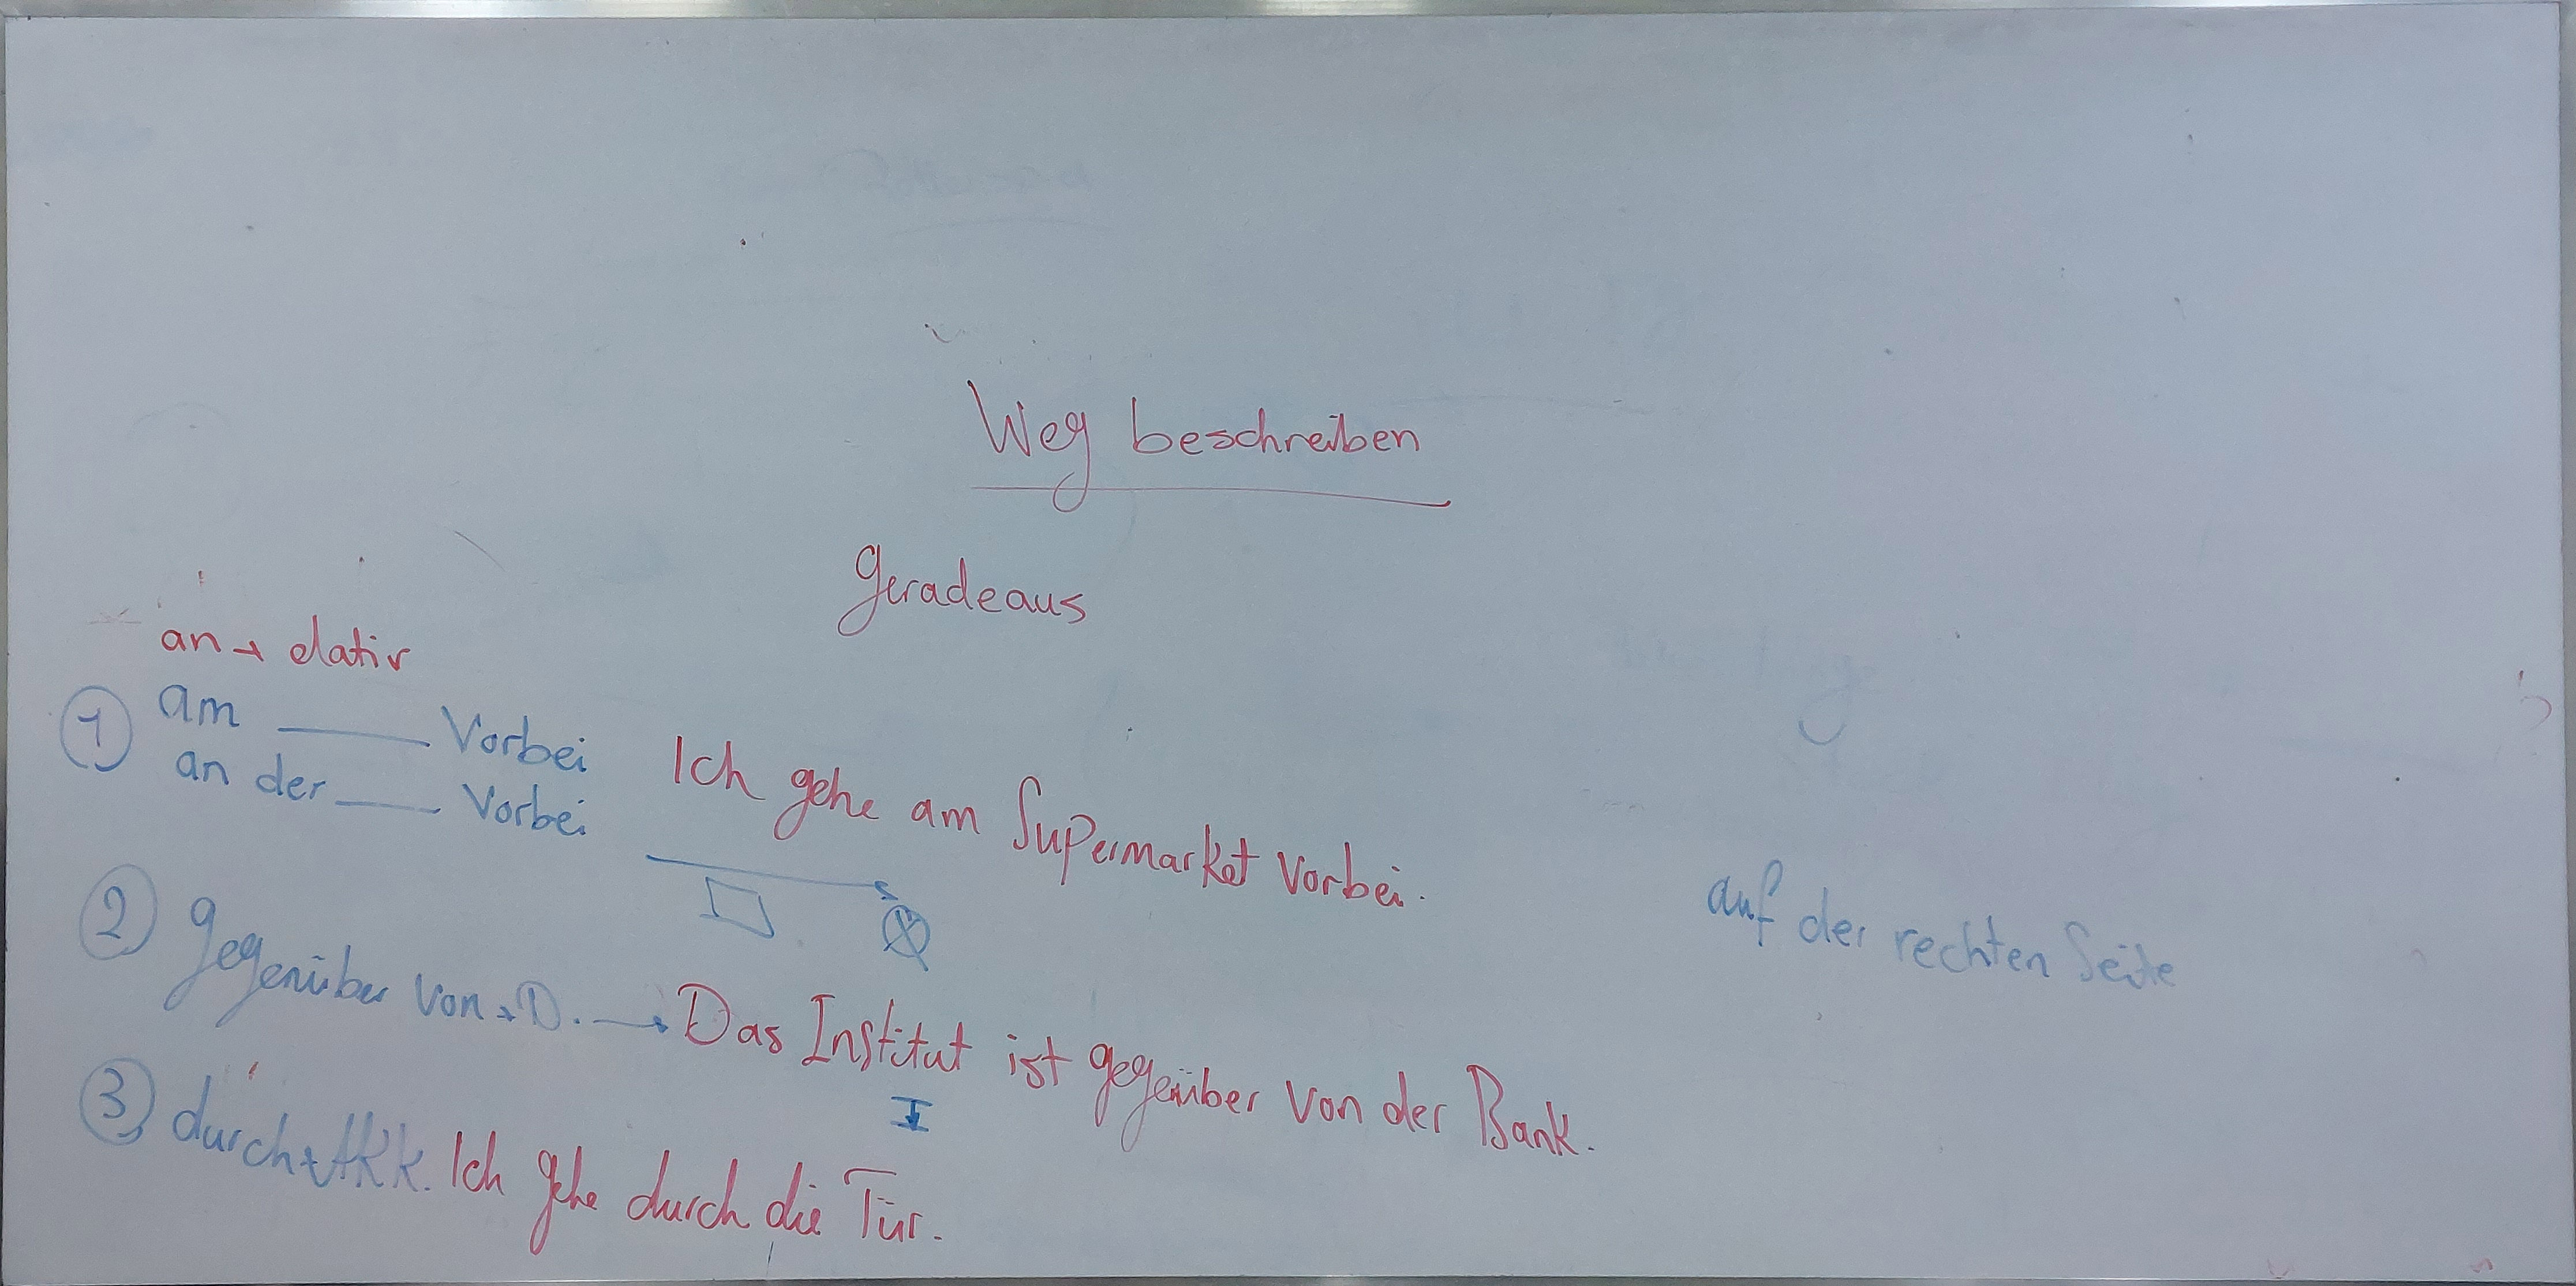 Weg beschreiben
Geradeaus
an → dativ
① am ____ Vorbei
an der ____ Vorbei
Ich gehe am Supermarket vorbei.
auf der rechten Seite
② gegenüber von + D. → Das Institut ist gegenüber von der Bank.
③ durch + Akk. Ich gehe durch die Tür.